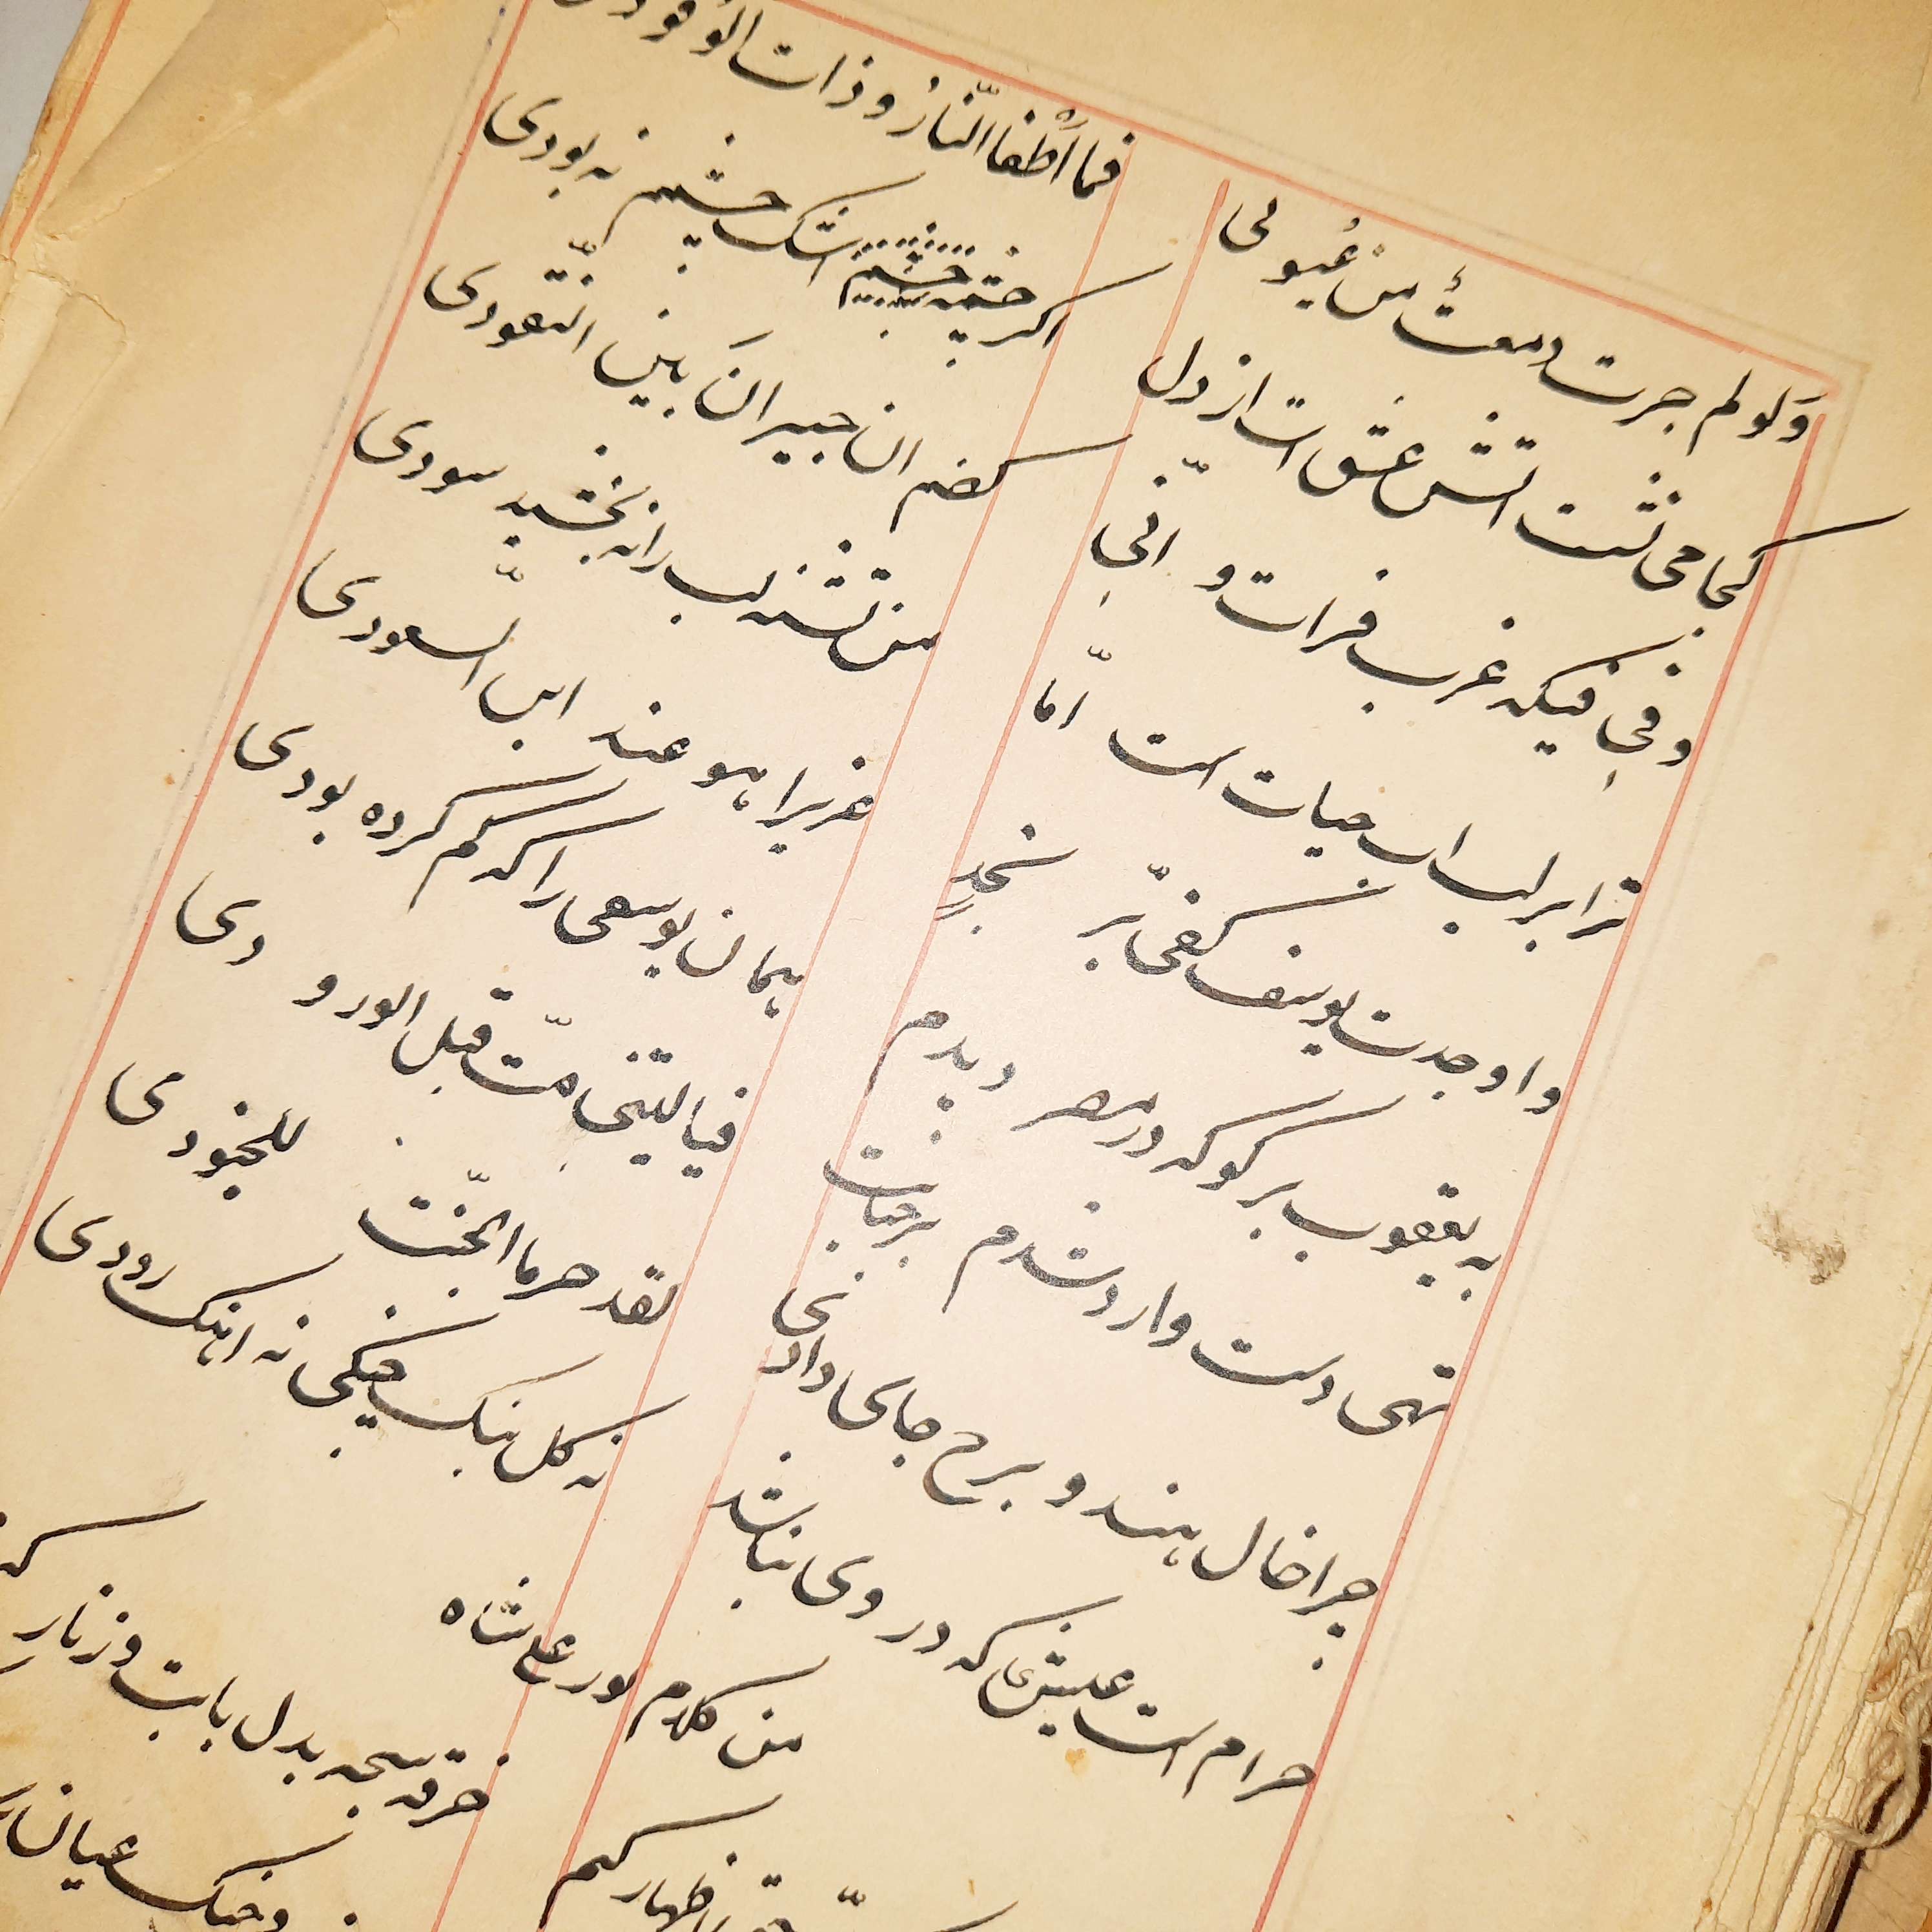 وَلو لم جرت دمعتُ منْ عُیونی
فما أطْفأ النّارُ و ذات الوُقودی
کجا می نشت اتش عشق است از دل
اکر چشمه اشک چشیم نه بودی
و فی فیکه غرب فرات و انّی
کضم ان حیرانَ بین النّقودی
ترا بر لب اب حیات است امّا
من تشنه لب را نه بخشید سودی
و اوجدت یوسف کفیّ بّر نجدٍ
عزیرا هو عند ابن السّعودی
به یعقوب بر کو که در مصر دیدم
همان یوسفی را که کم کرده بودی
تهی دست وارد شدم بر جنابت
فیالیتنی متّ قبل الورو دی
چرا خال هندو برخ جای دادی
لقد حرما الجّنت للخنودی
حرام است عیش که در وی نباشد
نه کل بنک چنکی نه اهنک رودی
من کلام نور علی شاه
اظهار کنم
خرقه سبحه بدل با بت و زنار کنم